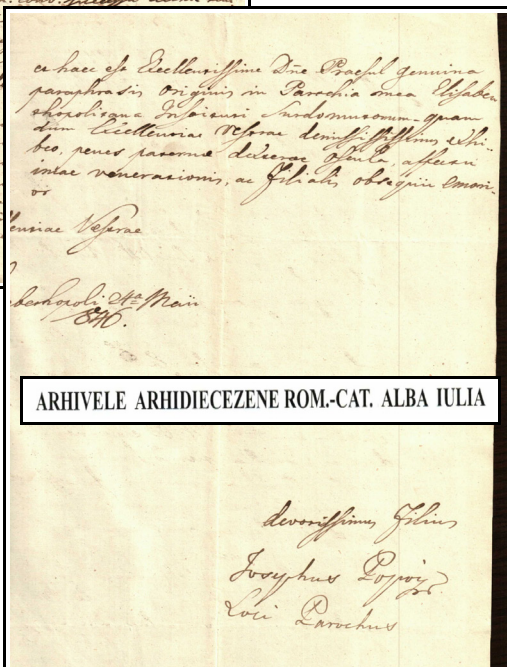 et haec est Excellentissime Dne Praesul genuina
paraphrasis originis in Parochia mea Elisabeth
shopolitana Instituti Surdomutorum quam
dum Excellentiae Vestrae demississimus exhi-
beo, penes paternae dexterae oscula, affectu
intae venerationis, ac filialis obsequii emori-
or
lentiae Vestrae
bethopoli 24a Maii
846.
ARHIVELE ARHIDIECEZENE ROM.-CAT. ALBA IULIA
devotissimus filius
Josephus
Loci Parochus